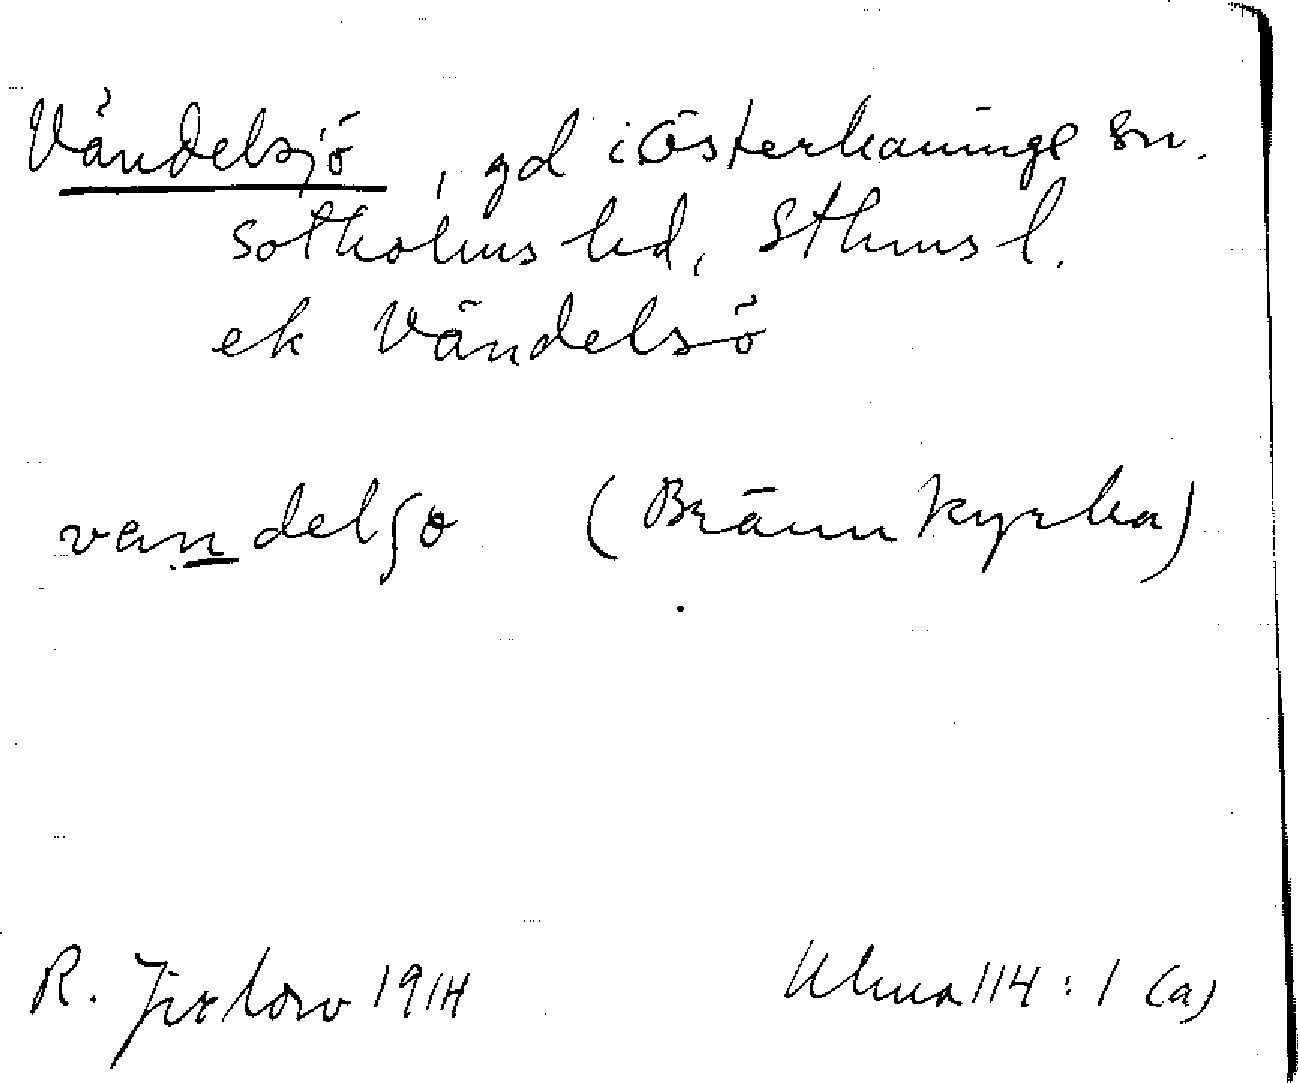 Vändelsjö, gd i Österhaninge sn.
Sotholms hd, Sthms l.
ek Vändelsö
vandelʃo (Brännkyrka)
R. Jirlow 1914 Ulma 114:1 (a)